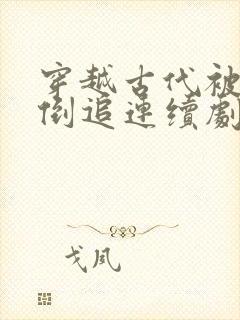 穿越古代被
倒追連續劇
戈風